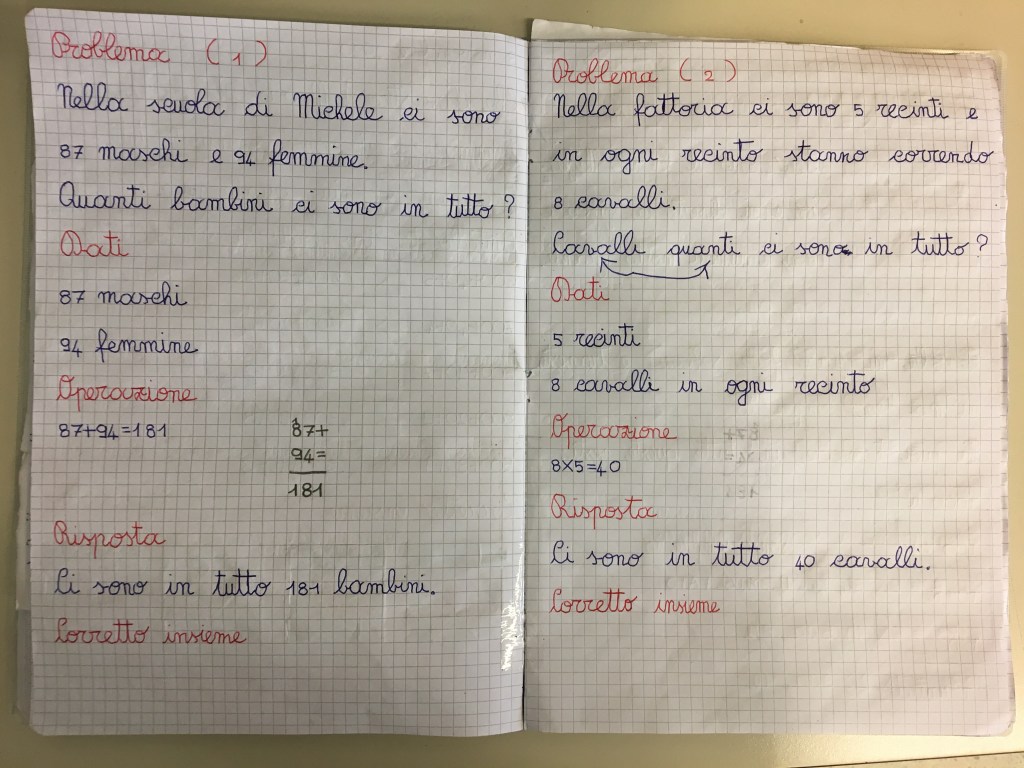 Problema (1)
Nella scuola di Michele ci sono
87 maschi e 94 femmine.
Quanti bambini ci sono in tutto?
Dati
87 maschi
94 femmine
Operazione
87+94=181
87+
94=
181
Risposta
Ci sono in tutto 181 bambini.
Corretto insieme
Problema (2)
Nella fattoria ci sono 5 recinti e
in ogni recinto stanno correndo
8 cavalli.
Cavalli quanti ci sono in tutto?
Dati
5 recinti
8 cavalli in ogni recinto
Operazione
8×5=40
Risposta
Ci sono in tutto 40 cavalli.
Corretto insieme